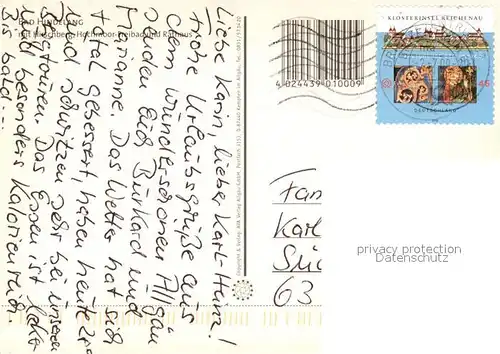 BAD HINDELANG
mit Hirschberg, Hochmoor-Freibad und Rathaus
Liebe Karin, liebe Karl-Heinz!
Frohe Urlaubsgrüße aus
dem wunderschönen Allgäu
senden Euch Burkard und
Marianne. Das Wetter hat sich
total gebessert, haben heute
und schwitzen sehr bei unseren
Bergtouren. Das Essen ist
und besonders Kalorienreich.
Bis bald...
4 024439 010009
KLOSTERINSEL REICHENAU
45
DEUTSCHLAND
Fam
Karl
63
privacy protection
Datenschutz